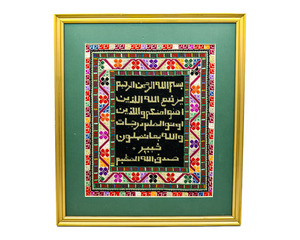 بسم الله الرحمن الرحيم
يرفع الله الذين
آمنوا منكم والذين
أوتوا العلم درجات
والله بما تعملون
خبير
صدق الله العظيم